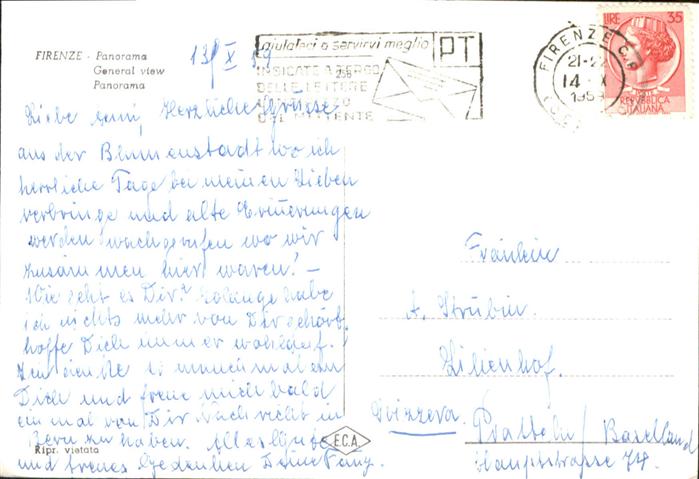 FIRENZE - Panorama
General view
Panorama
13/X 59
aiutateci a servirvi meglio
PT
INDICATE A TERGO
DELLE LETTERE
DEL MITTENTE
FIRENZE C.P.
21-22
14 X
1959
LIRE 35
REPUBBLICA
ITALIANA
Liebe Herzliche Grüsse
aus der Blumenstadt wo ich
herrliche Tage bei meinen Lieben
verbringe und alte Erinnerungen
werden wachgerufen wo wir
zusammen hier waren! -
Wie geht es Dir? Solange habe
ich nichts mehr von Dir gehört.
hoffe Dich immer wohlauf.
manchmal an
Dich und freue mich bald
einmal von Dir Nachricht in
Bern zu haben. Alles Liebe
und treues Gedenken Deine Fany.
Ripr. vietata
E.C.A.
Fräulein
A. Strübin.
Lilienhof.
Svizzera Pratteln / Baselland
Hauptstrasse 74.